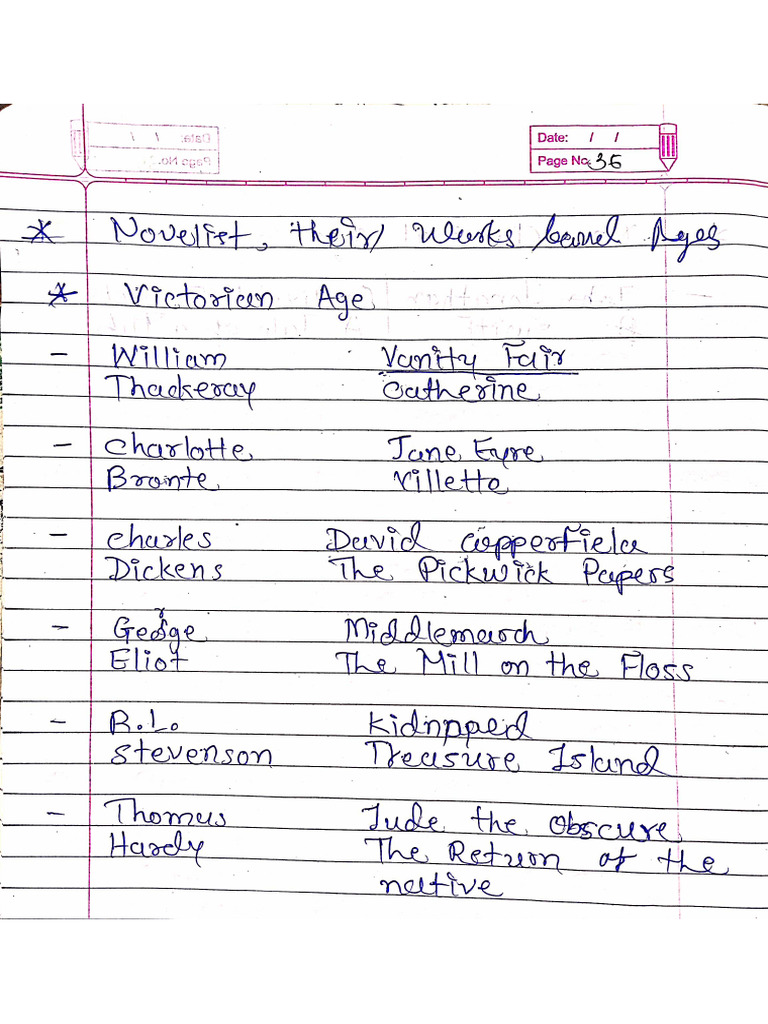 Date: / /
Page No. 36
* Novelist, their works and Ages
* Victorian Age
- William Vanity Fair
Thackeray Catherine
- Charlotte Jane Eyre
Bronte Villette
- Charles David Copperfield
Dickens The Pickwick Papers
- George Middlemarch
Eliot The Mill on the Floss
- R.L. Kidnpped
Stevenson Treasure Island
- Thomas Jude the Obscure
Hardy The Return of the
native